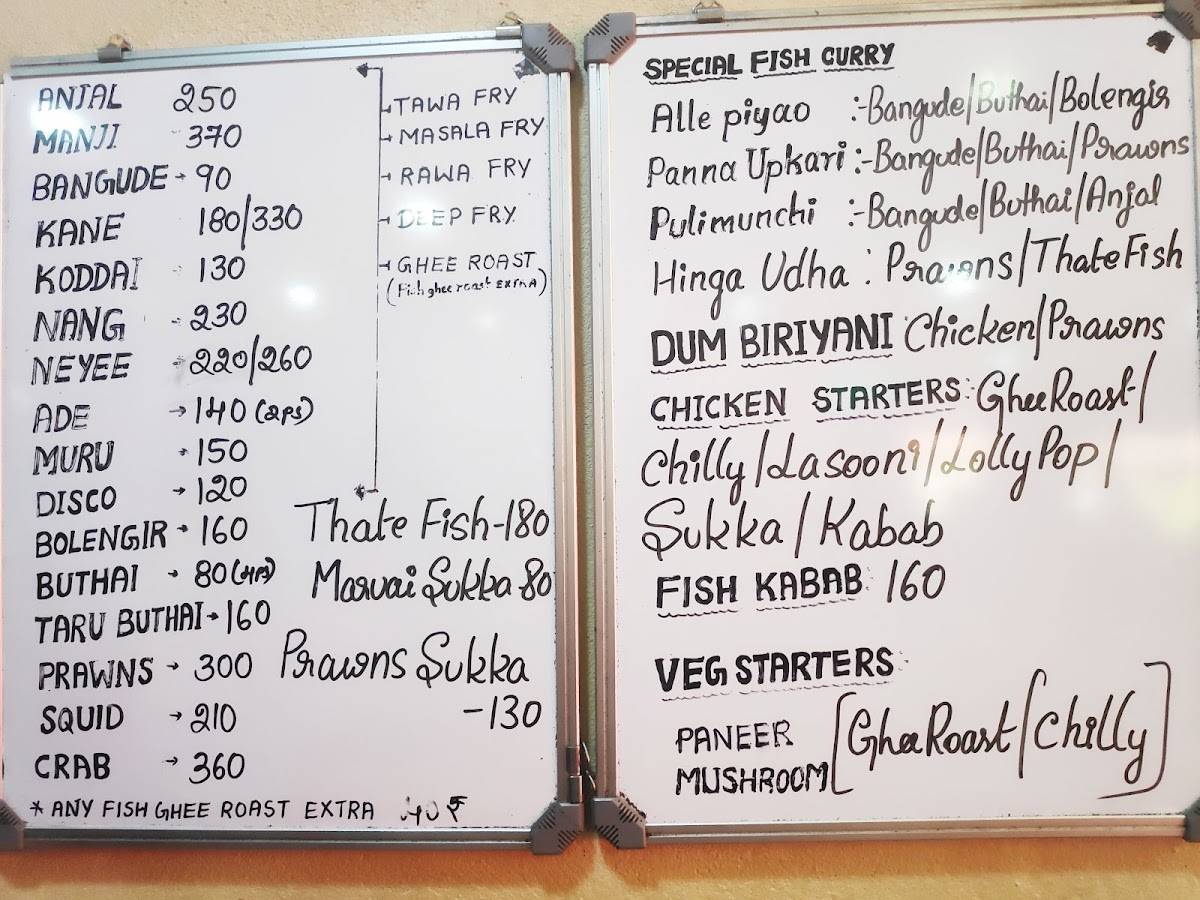 ANJAL 250
MANJI - 370
BANGUDE → 90
KANE 180/330
KODDAI - 130
NANG - 230
NEYEE - 220/260
ADE → 140 (2PS)
MURU → 150
DISCO → 120
BOLENGIR → 160
BUTHAI → 80 (4PS)
TARU BUTHAI → 160
PRAWNS → 300
SQUID → 210
CRAB → 360
* ANY FISH GHEE ROAST EXTRA 40 ₹
TAWA FRY
MASALA FRY
RAWA FRY
DEEP FRY
GHEE ROAST
(Fish ghee roast EXTRA)
Thate Fish-180
Marvai Sukka 80
Prawns Sukka
-130
SPECIAL FISH CURRY
Alle piyao :-Bangude/Buthai/Bolengir
Panna Upkari :-Bangude/Buthai/Prawns
Pulimunchi :-Bangude/Buthai/Anjal
Hinga Udha : Prawns/Thate Fish
DUM BIRIYANI Chicken/Prawns
CHICKEN STARTERS: Ghee Roast/
Chilly/Lasooni/Lolly Pop/
Sukka/Kabab
FISH KABAB: 160
VEG STARTERS:
PANEER
MUSHROOM [Ghee Roast/Chilly]